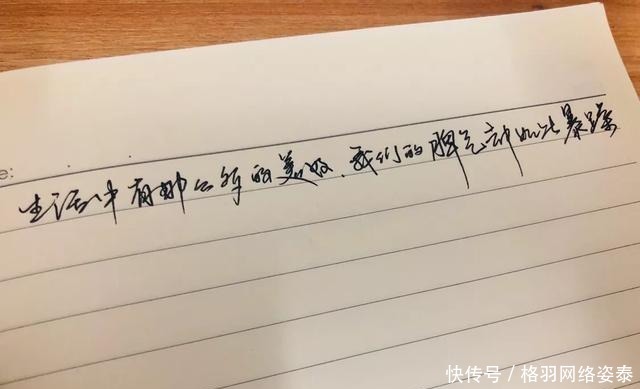 e:
生活中有那么多的美好、我们的脾气却如此暴躁
快传号 / 格羽网络姿泰